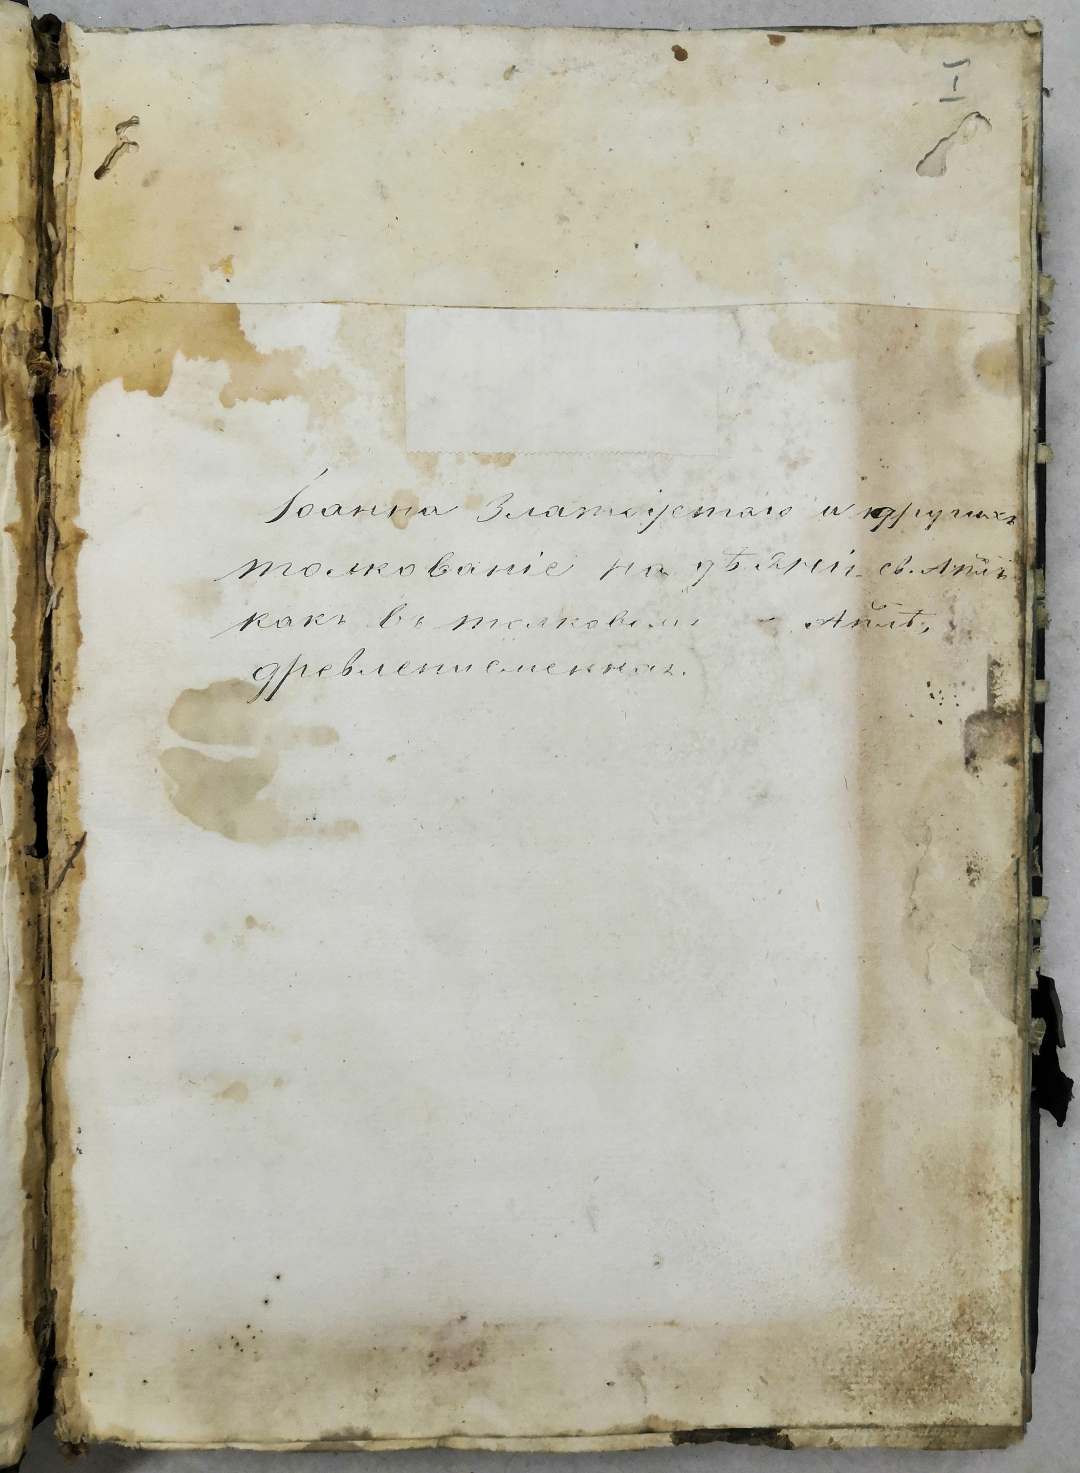 I
Іоанна Златоустаго и другихъ
толкованіе на дѣяній св. Апⷭ҇лъ
какъ въ толковомъ - Апⷭ҇лѣ,
древлеписменная.